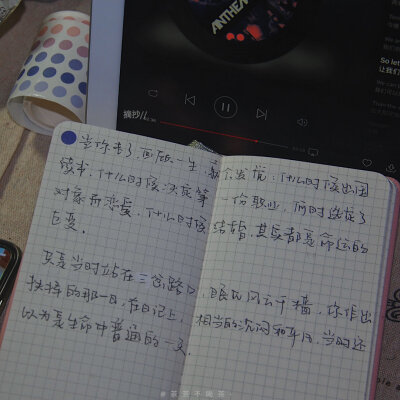 ANTHE
So let
让我们
摘抄/
当你老了，回顾一生，就会发觉：什么时候出国
读书，什么时候决定第一份职业，何时选定了
对象而恋爱，什么时候结婚，其实都是命运的
巨变。
只是当时站在三岔路口，眼见风云千樯，你作出
抉择的那一日，在日记上，相当的沉闷和平凡，当时还
以为是生命中普通的一天。